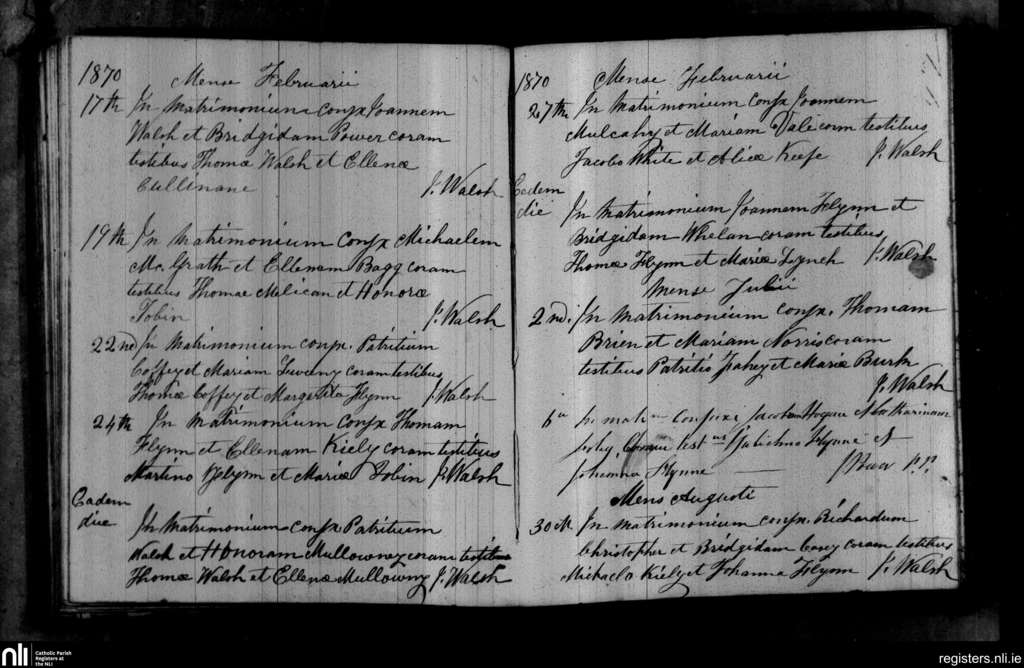 1870 Mense Februarii
17th In Matrimonium conjx Joannem
Walsh et Bridgidam Power coram
testibus Thoma Walsh et Ellena
Cullinane J. Walsh
19th In Matrimonium conjx Michaelem
Mc. Grath et Ellenam Bagg coram
testibus Thomae Melican et Honora
Tobin J. Walsh
22nd In Matrimonium conjx. Patritium
Coffey et Mariam coram testibus
Thoma Coffey et Margerita Flynn J. Walsh
24th In Matrimonium conjx Thomam
Flynn et Ellenam Kiely coram testibus
Martino et Maria Tobin J. Walsh
Eadem
die In Matrimonium conjx Patritium
Walsh et Honoram Mullowney coram testibus
Thoma Walsh et Ellena Mullowny J. Walsh
1870 Mense Februarii
27th In Matrimonium conjx Joannem
Mulcahy et Mariam Dale coram testibus
Jacobo White et Alicia Keefe J. Walsh
Eadem
die In Matrimonium Joannem Flynn et
Bridgidam Whelan coram testibus
Thoma Flynn et Maria Lynch J. Walsh
Mense Julii
2nd. In Matrimonium conjx. Thomam
Brien et Mariam Norris coram
testibus Patritio Fahey et Maria Burk
J. Walsh
6 In mat Conjunxi Jacobum Hogan
Coram test Flynne et
Johanna Flynne P.P.
Mens Augusti
30th In Matrimonium conjx. Richardum
Christopher et Bridgidam Casey coram testibus
Michaelo Kiely et Johanna Flynn J. Walsh
nli Catholic Parish
Registers at
the NLI
registers.nli.ie